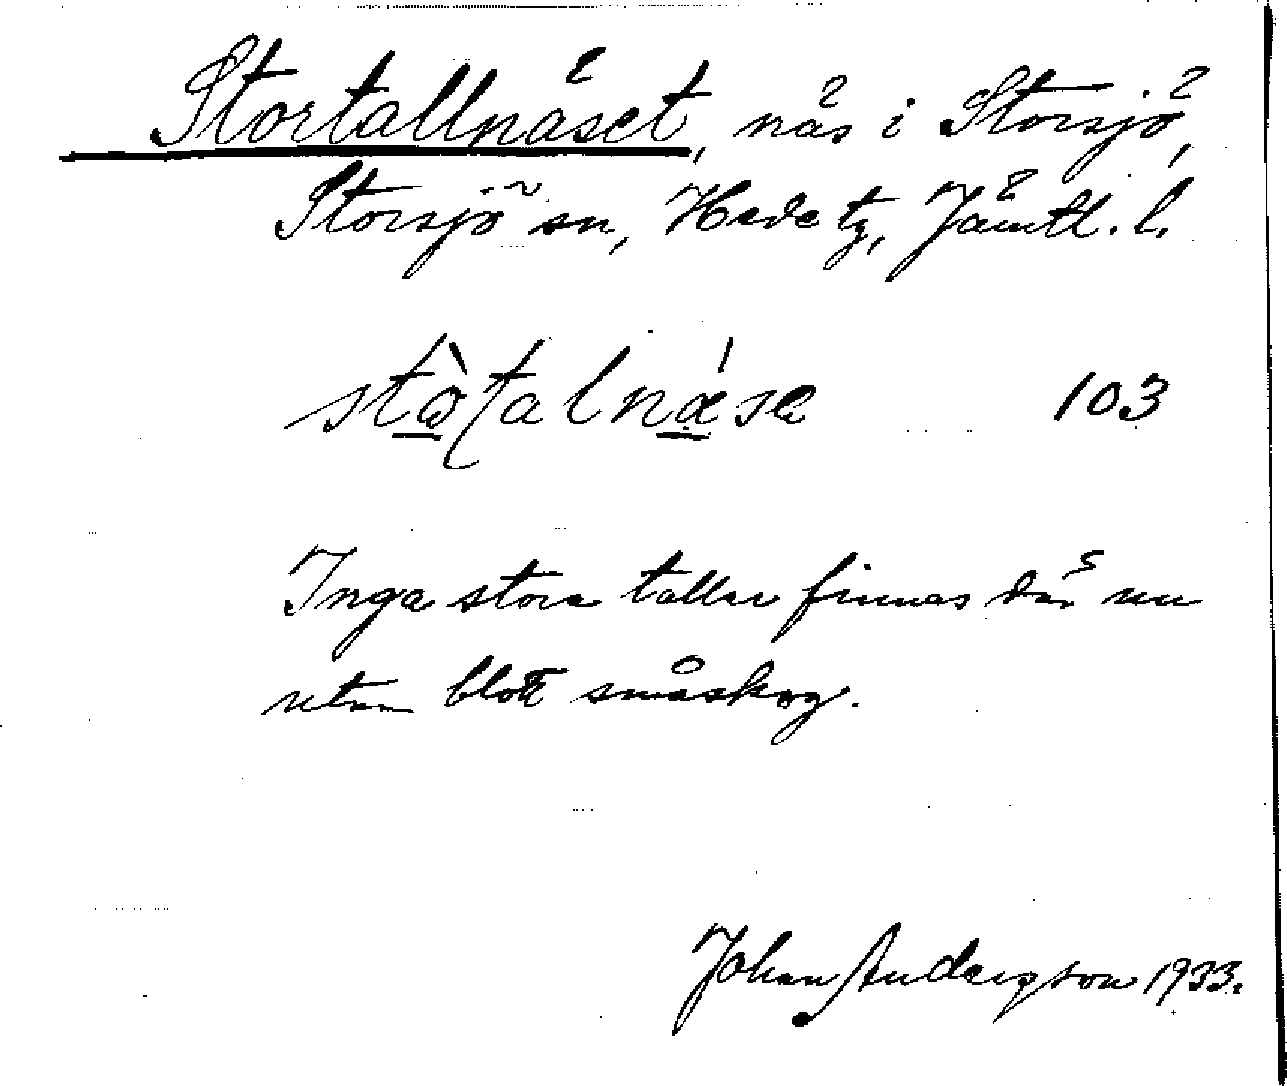 Stortallnäset, näs i Storsjö,
Storsjö sn, Hede tg, Jämtl. l.
stò̱ʈalnǽ̱se 103
Inga stora tallar finnas där nu
utan blott småskog.
Johan Andersson 1933.